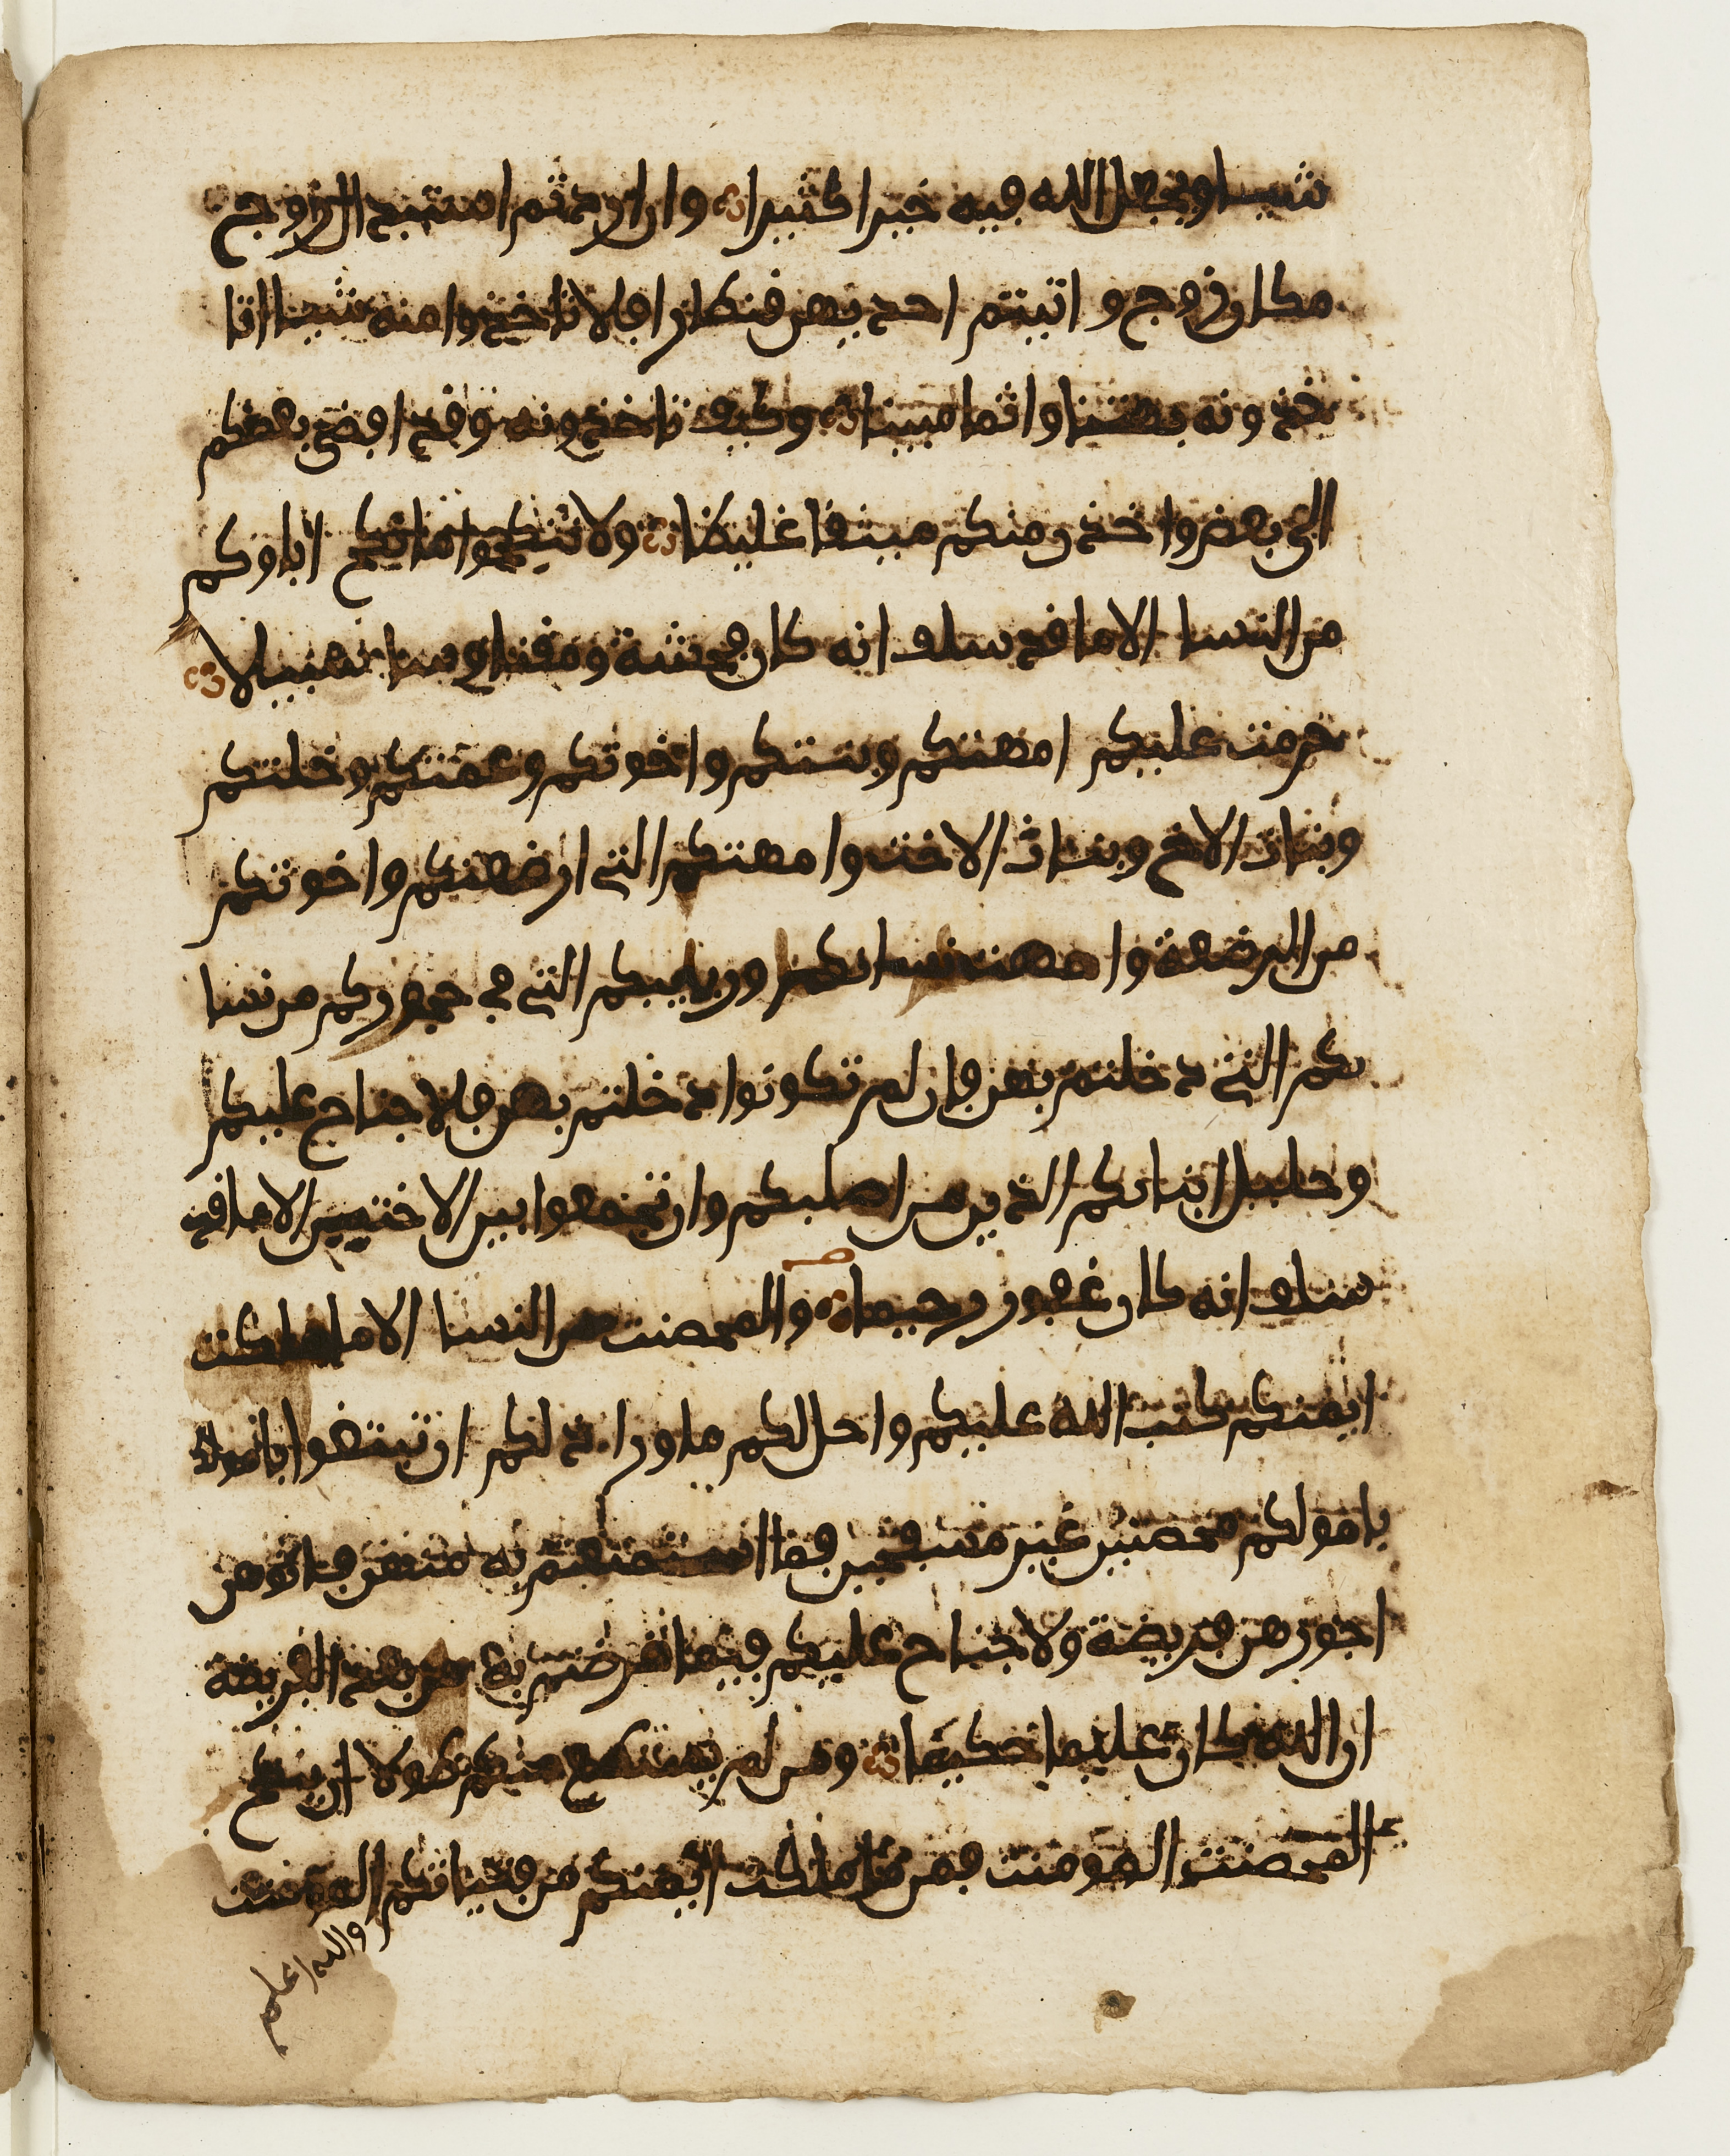 شيا ويجعل الله فيه خيرا كثيرا وان اردتم استبدال زوج
مكان زوج و اتيتم احديهن قنطارا فلا تاخذوا منه شيا اتا
خذونه بهتنا واثما مبينا وكيف تاخذونه وقد افضى بعضكم
الى بعض واخذن منكم ميثقا غليظا ولا تنكحوا ما نكح اباوكم
من النسا الا ما قد سلف انه كان فحشة ومقتا وسا سبيلا
حرمت عليكم امهتكم وبنتكم واخوتكم وعمتكم وخلتكم
وبنات الاخ وبنات الاخت وامهتكم التي ارضعنكم واخوتكم
من الرضعة وامهت نسائكم وربايبكم التي في حجوركم من نسا
ئكم التي دخلتم بهن فان لم تكونوا دخلتم بهن فلا جناح عليكم
وحليل ابنائكم الذين من اصلبكم وان تجمعوا بين الاختين الا ما قد
سلف انه كان غفور رحيما والمحصنت من النسا الا ما ملكت
ايمنكم كتب الله عليكم واحل لكم ما ورا ذلكم ان تبتغوا باموالكم
باموالكم محصنين غير مسفحين فما استمتعتم به منهن فاتوهن
اجورهن فريضة ولا جناح عليكم فيما ترضيتم به من بعد الفريضة
ان الله كان عليما حكيما ومن لم يستطع منكم طولا ان ينكح
المحصنت المومنت فمن ما ملكت ايمنكم من فتياتكم المومنت
والله اعلم